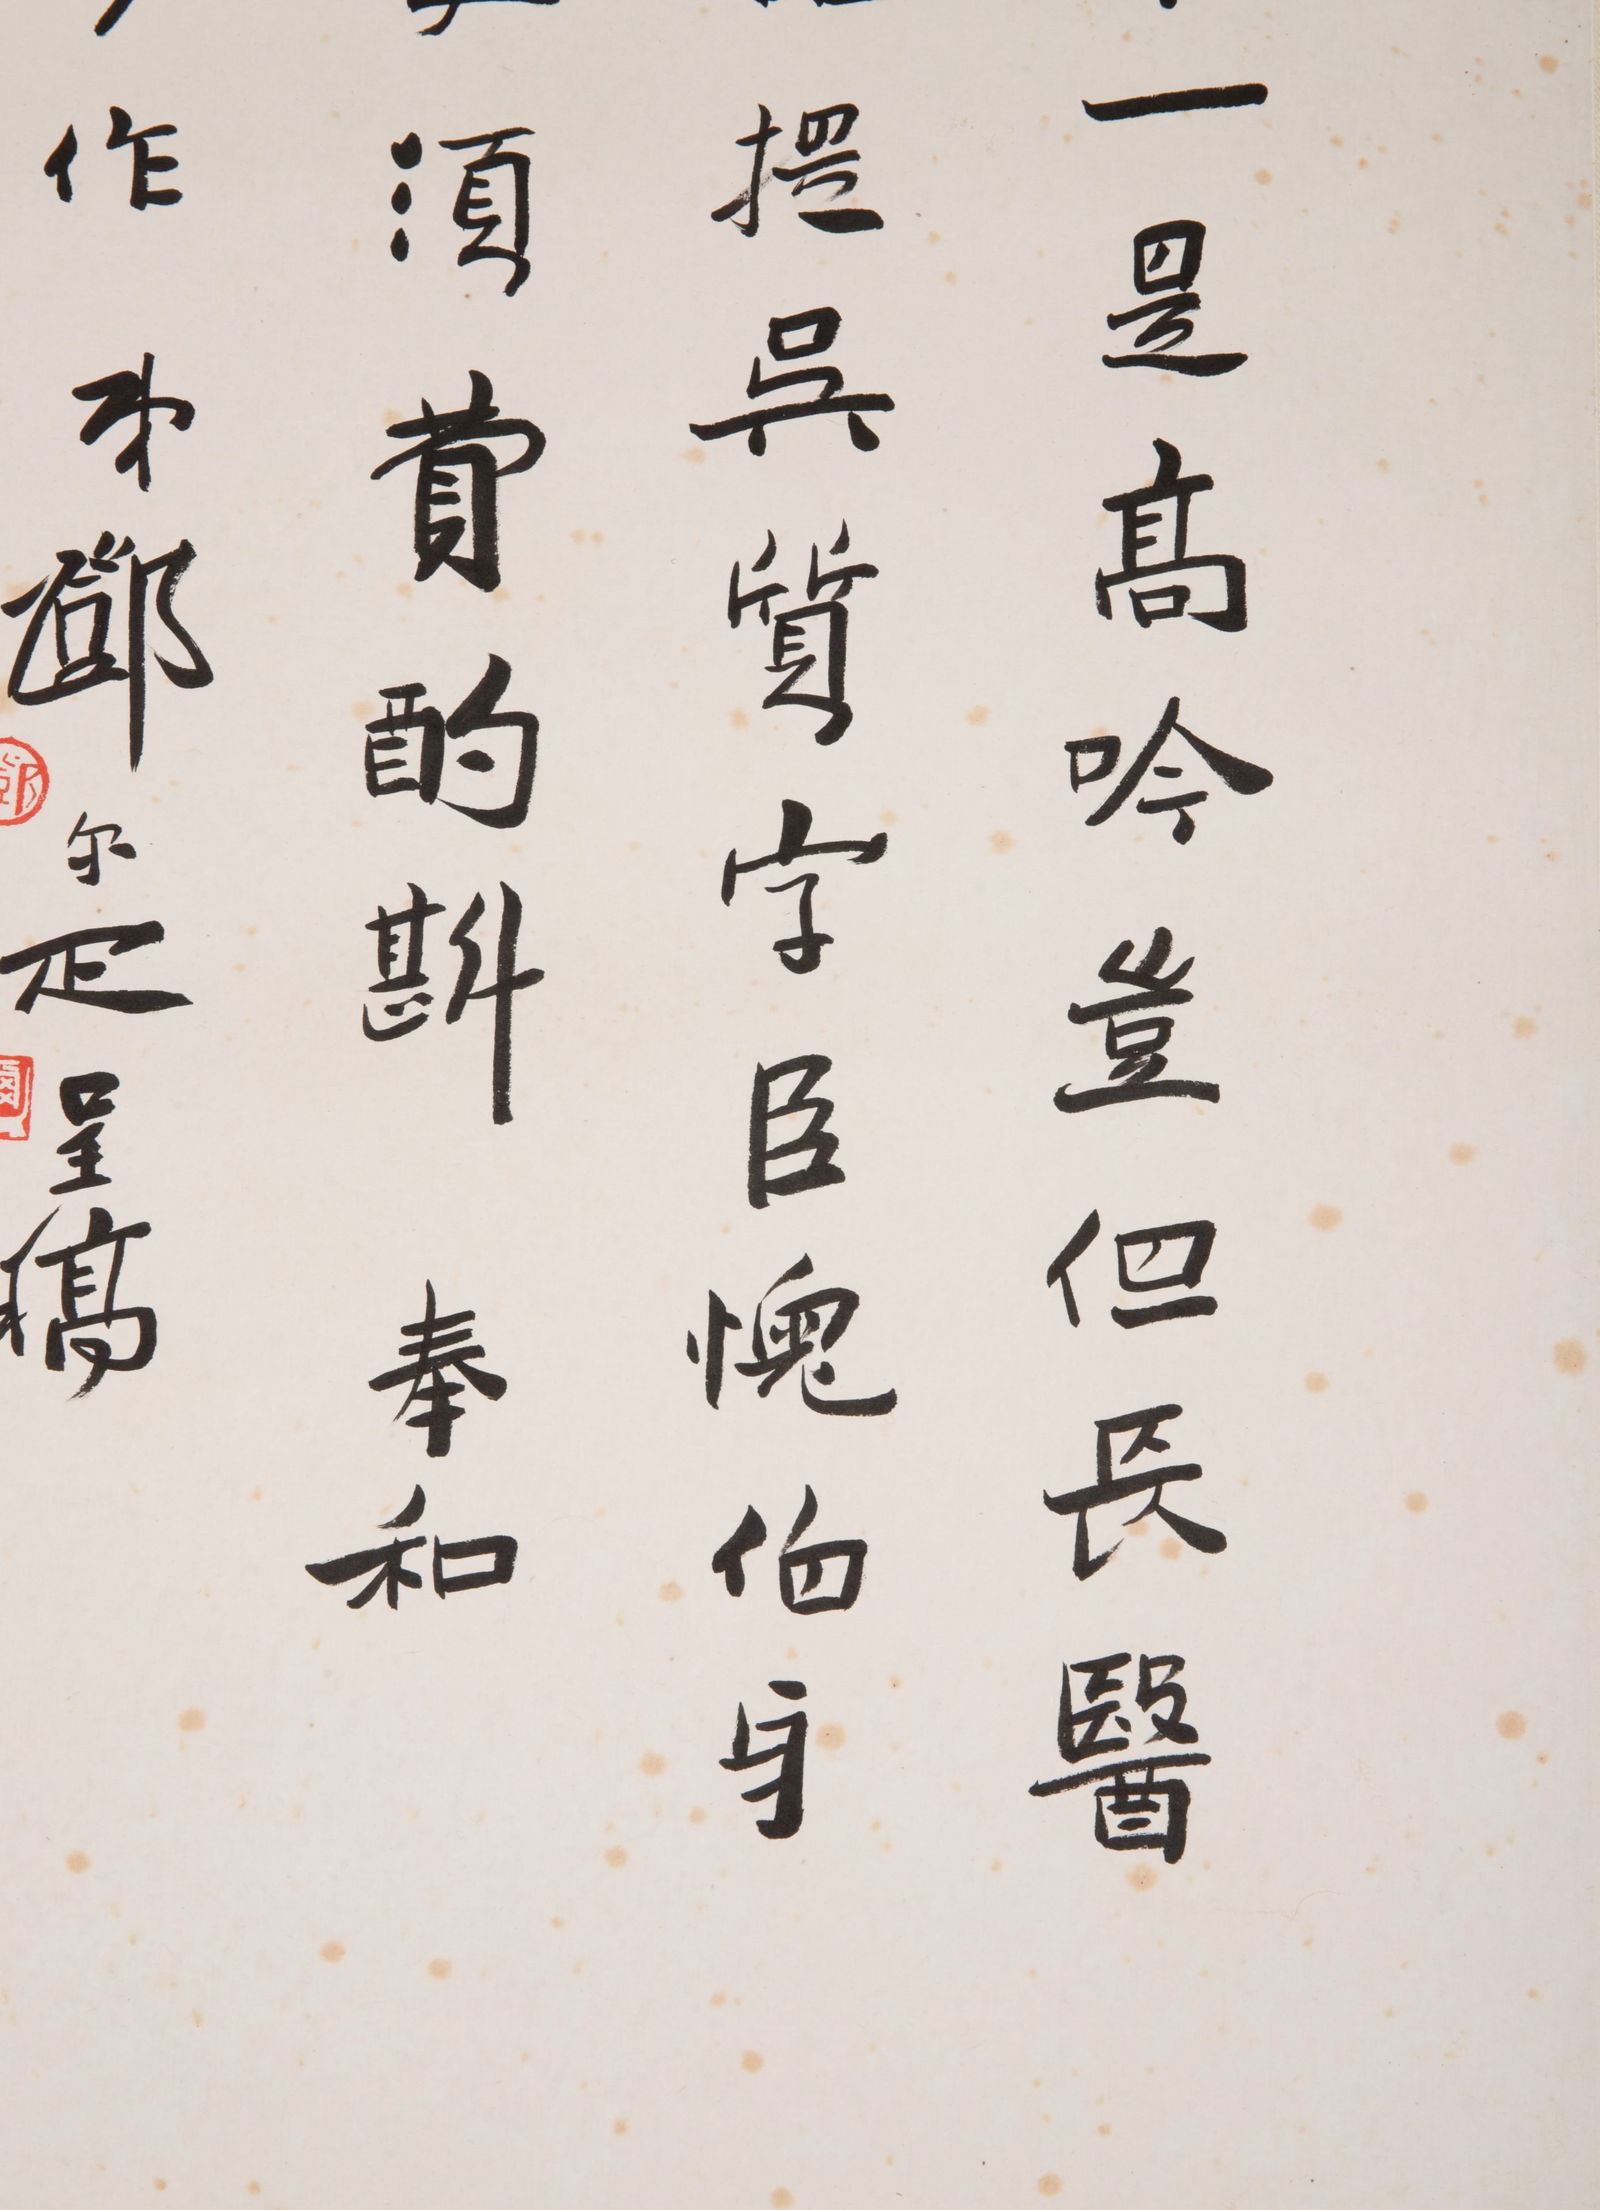 一是高吟豈但長醫
提吳質字臣愧伯身
須費酌斟 奉和
作 弟鄧尔疋呈稿